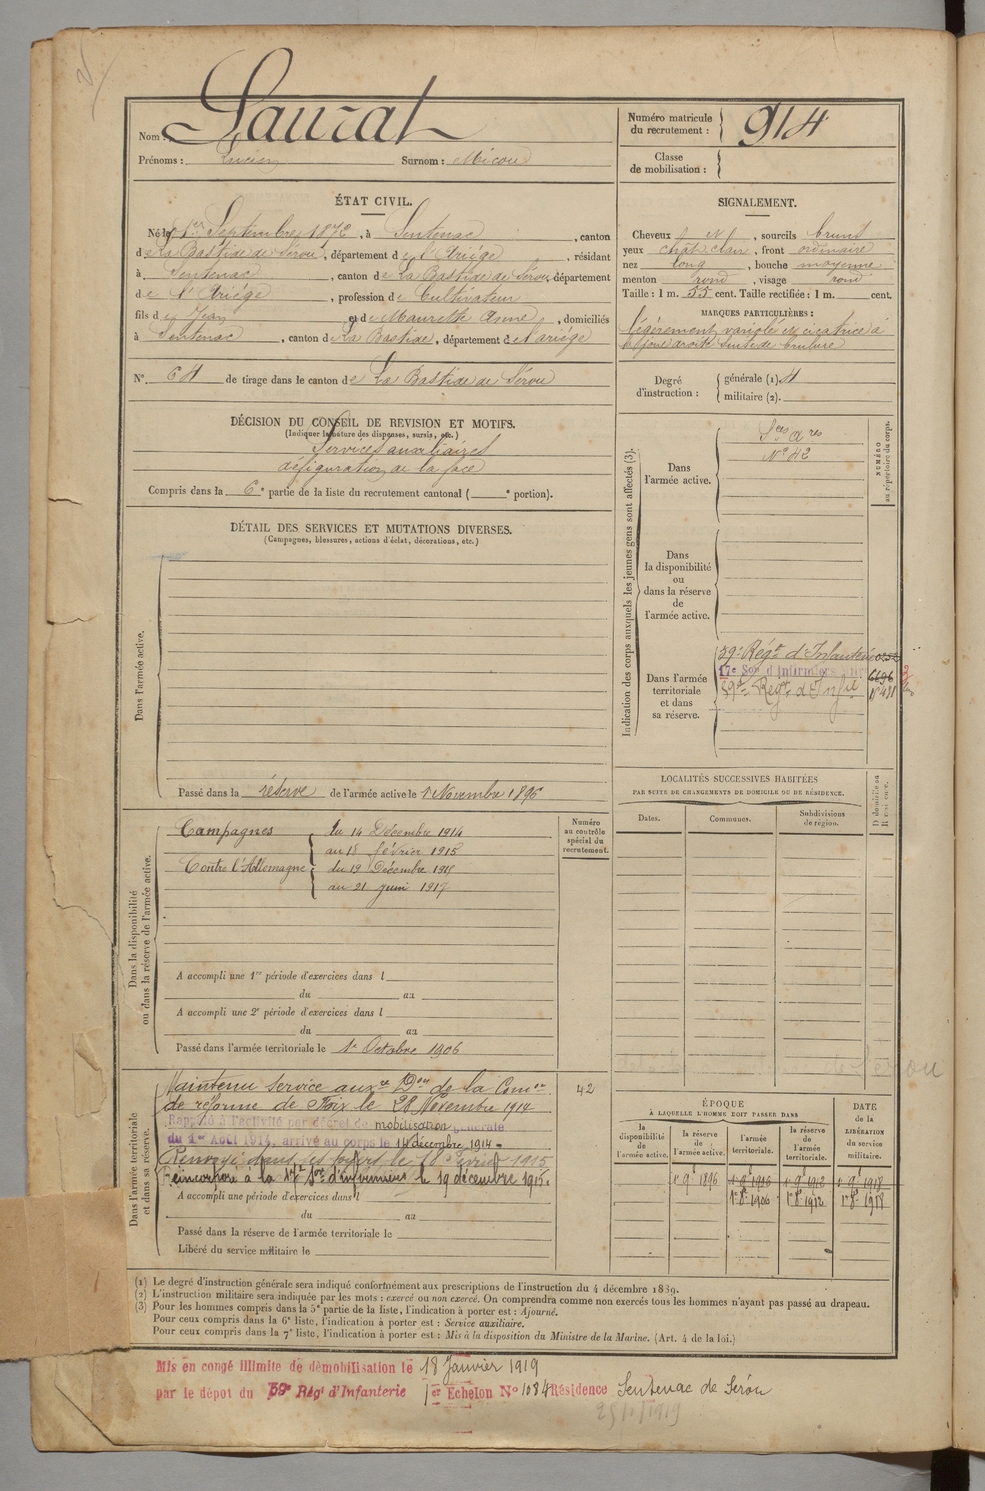 Nom : Lauzat
Prénoms : Lucien Surnom : Micou
Numéro matricule du recrutement : 914
Classe de mobilisation :
ÉTAT CIVIL.
Né le 1er Septembre 1872, à Sentenac, canton
de La Bastide de Sérou, département de l'Ariège, résidant
à Sentenac, canton de La Bastide de Sérou, département
de l'Ariège, profession de Cultivateur
fils de Jean et de Maurette, domiciliés
à Sentenac, canton de La Bastide, département de l'ariège
N° 64 de tirage dans le canton de La Bastide de Sérou
SIGNALEMENT.
Cheveux, sourcils bruns
yeux chât clair, front ordinaire
nez long, bouche moyenne
menton rond, visage rond
Taille : 1 m. 55 cent. Taille rectifiée : 1 m. cent.
MARQUES PARTICULIÈRES :
légèrement variolé et cicatrice à
la joue droite suite de brulure
Degré d'instruction : générale (1) militaire (2).
DÉCISION DU CONSEIL DE REVISION ET MOTIFS.
(Indiquer la nature des dispenses, sursis, etc.)
Services auxiliaires
défiguration de la face
Compris dans la 6e partie de la liste du recrutement cantonal ( e portion).
DÉTAIL DES SERVICES ET MUTATIONS DIVERSES.
(Campagnes, blessures, actions d'éclat, décorations, etc.)
Dans l'armée active.
Passé dans la réserve de l'armée active le 1 Novembre 1896
Indication des corps auxquels les jeunes gens sont affectés (3).
NUMÉRO au répertoire du corps.
Dans l'armée active.
N° 42
Dans la disponibilité ou dans la réserve de l'armée active.
Dans l'armée territoriale et dans sa réserve.
59e Régt d'Infanterie
17e Son d'Infirmiers
6696
59e Régt d'Infie
LOCALITÉS SUCCESSIVES HABITÉES
PAR SUITE DE CHANGEMENTS DE DOMICILE OU DE RÉSIDENCE.
Dates. Communes. Subdivisions de région.
Dans la disponibilité ou dans la réserve de l'armée active.
Numéro au contrôle spécial du recrutement.
Campagnes du 14 Décembre 1914
au 18 février 1915
Contre l'Allemagne du 19 Décembre 1915
au 21 juin 1917
A accompli une 1re période d'exercices dans l
du au
A accompli une 2e période d'exercices dans l
du au
Passé dans l'armée territoriale le 1er Octobre 1906
Dans l'armée territoriale et dans sa réserve.
Maintenu service auxre Don de la Comon
de réforme de Foix le 28 Novembre 1914
42
Rappelé à l'activité par décret de mobilisation générale
du 1er Août 1914, arrivé au corps le 14 décembre 1914
Renvoyé dans ses foyers le 18 Février 1915
Réincorporé à la 17e Son d'infirmiers le 19 décembre 1915.
A accompli une période d'exercices dans l
du au
Passé dans la réserve de l'armée territoriale le
Libéré du service militaire le
ÉPOQUE
À LAQUELLE L'HOMME DOIT PASSER DANS
la disponibilité de l'armée active.
la réserve de l'armée active.
l'armée territoriale.
la réserve de l'armée territoriale.
DATE de la LIBÉRATION du service militaire.
(1) Le degré d'instruction générale sera indiqué conformément aux prescriptions de l'instruction du 4 décembre 1889.
(2) L'instruction militaire sera indiquée par les mots : exercé ou non exercé. On comprendra comme non exercés tous les hommes n'ayant pas passé au drapeau.
(3) Pour les hommes compris dans la 5e partie de la liste, l'indication à porter est : Ajourné.
Pour ceux compris dans la 6e liste, l'indication à porter est : Service auxiliaire.
Pour ceux compris dans la 7e liste, l'indication à porter est : Mis à la disposition du Ministre de la Marine. (Art. 4 de la loi.)
Mis en congé illimité de démobilisation le 18 Janvier 1919
par le dépot du 59e Régt d'Infanterie 1er Echelon N° 1084 Résidence Sentenac de Serou